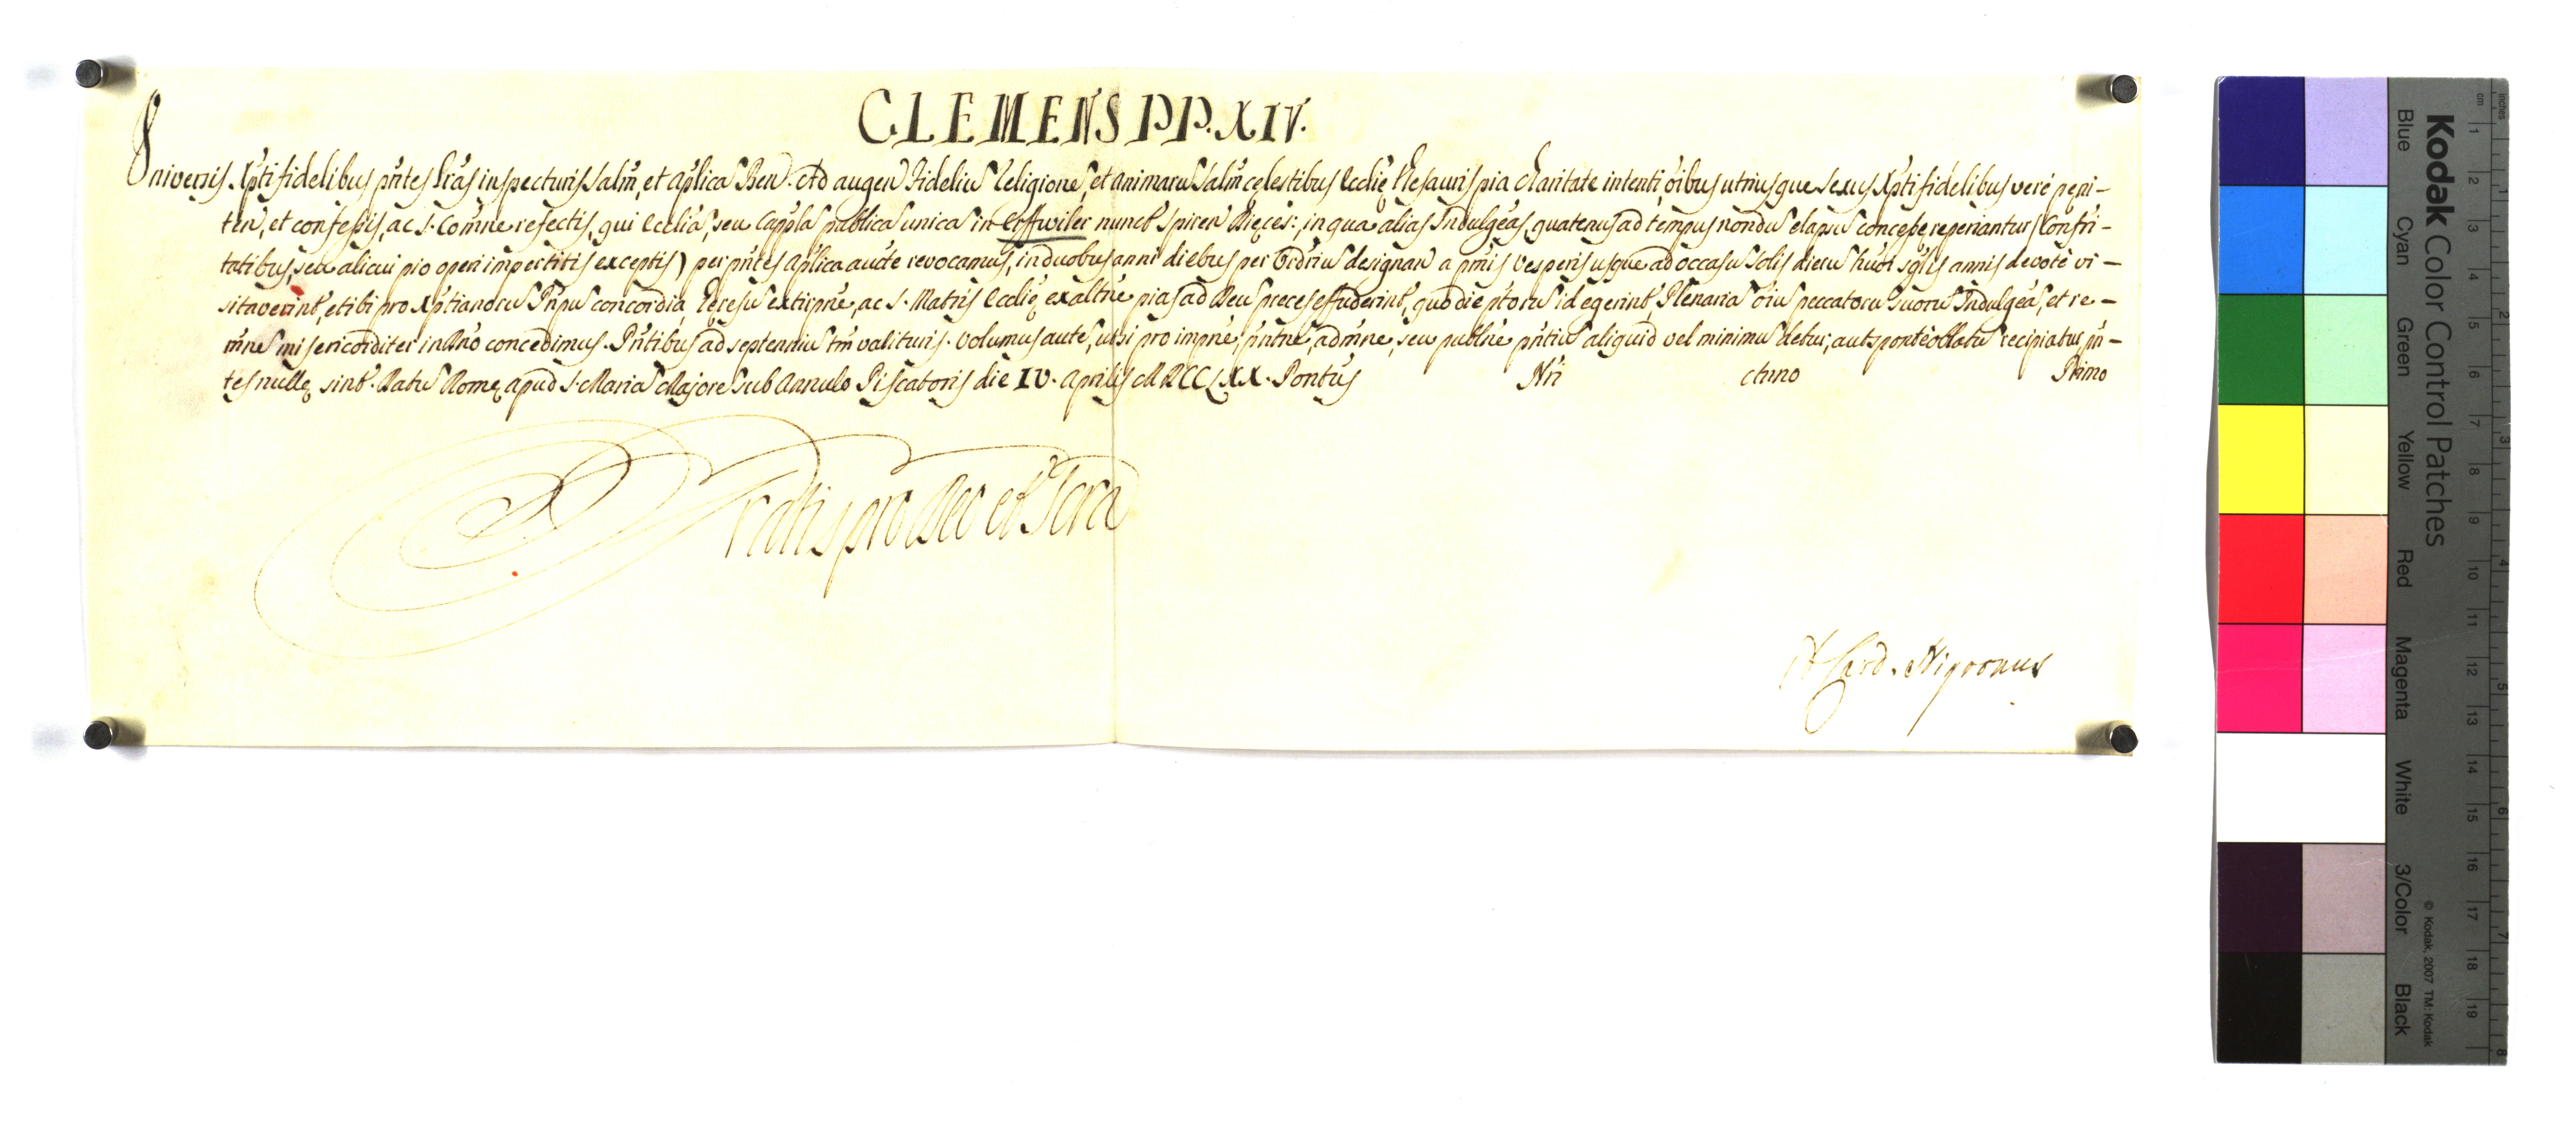 CLEMENS PP. XIV.
Universis Xpti fidelibus pntes lras inspecturis salm, et aplica Ben. Ad augen fideliu religione, et animaru salm celestibus Ecclie thesauris pia charitate intenti, oibus utriusque sexus Xpti fidelibus vere peni-
ten, et confessis, ac S. Comne refectis, qui Eccliā, seu Cappla publica unica in Erffwiler nunct Spiren Dieces:, in qua alias Indulgeas, quatenus ad tempus nondu elapsu concesse reperiantur (Confri-
tatibus, seu alicui pio operi impertitis exceptis) per pntes aplica aucte revocamus, in duobus anni diebus per Ordriu designan a pmis vesperis usque ad occasu solis dieru huoi sglis annis devote vi-
sitaverint, et ibi pro Xptianoru Prpu concordia, heresu extirpne, ac S. Matris Ecclie exaltne pias ad Deu preces effuderint, quo die ptoru id egerint, Plenaria oiu peccatoru suoru Indulgea, et re-
mne misericorditer in Dno concedimus. Pntibus ad septenniu tm valituris. Volumus aute, ut si pro impne, pntne, admne, seu publne pntiu aliquid vel minimu detur, aut sponte oblatu recipiatur, pn-
tes nulle sint. Datu Rome apud S. Maria Majore sub Annulo Piscatoris die IV. Aprilis MDCCLXX. Pontus Nri Anno Primo
Gratis pro Deo et Scra
A Card. Nigronus
Kodak Color Control Patches
Blue Cyan Green Yellow Red Magenta White 3/Color Black
© Kodak, 2007 TM: Kodak
cm 1 2 3 4 5 6 7 8 9 10 11 12 13 14 15 16 17 18 19
inches 1 2 3 4 5 6 7 8